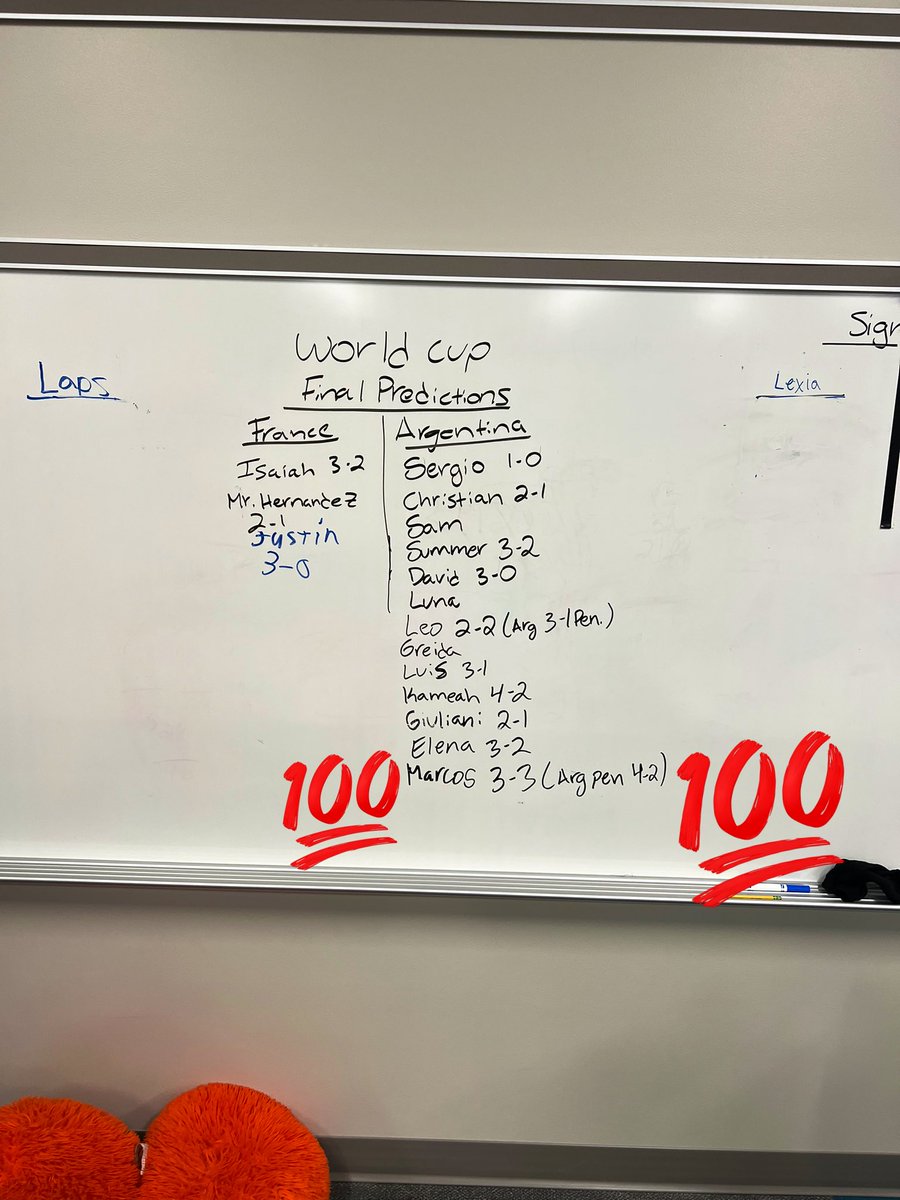 World cup
Final Predictions
Laps
Sign
Lexia
France
Isaiah 3-2
Mr. Hernandez
2-1
Justin
3-0
Argentina
Sergio 1-0
Christian 2-1
Sam
Summer 3-2
David 3-0
Luna
Leo 2-2 (Arg 3-1 Pen.)
Greida
Luis 3-1
Kameah 4-2
Giuliani 2-1
Elena 3-2
Marcos 3-3 (Arg pen 4-2)
100
100